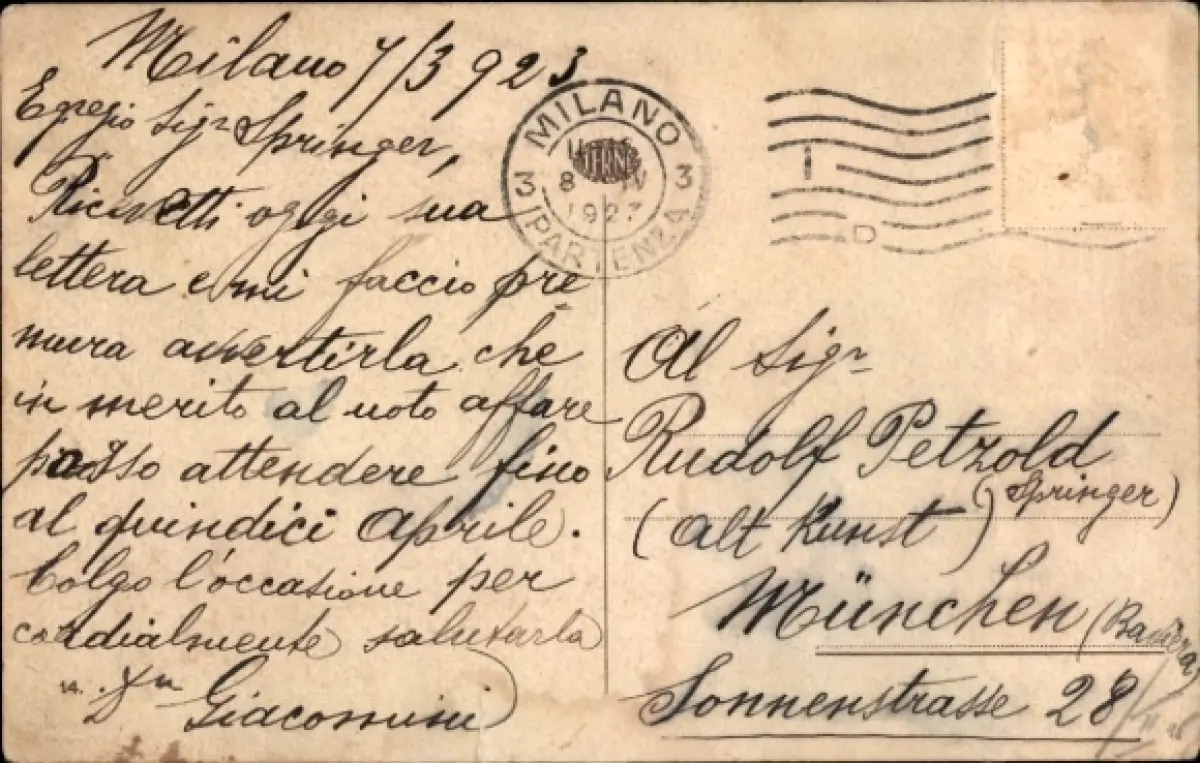 Milano 7/3 923
Egregio Sigr Springer,
Ricevetti oggi sua
lettera e mi faccio pre=
mura avvertirla che
in merito al noto affare
posso attendere fino
al quindici Aprile.
Colgo l'occasione per
cordialmente salutarla
Giacomini
MILANO
3 3
8 IV
1923
PARTENZA
Al Sigr
Rudolf Petzold
(Springer)
(Alt Kunst)
München (Baviera)
Sonnenstrasse 28/